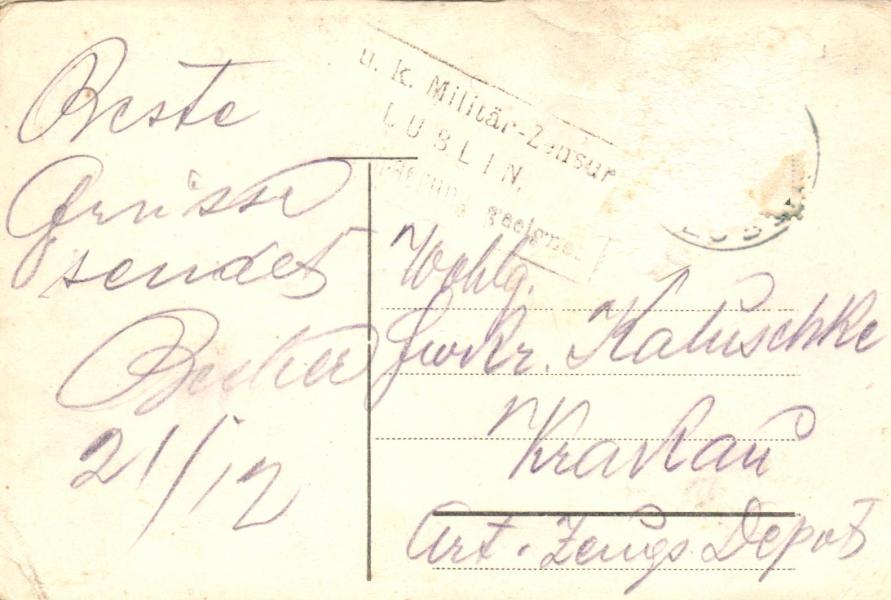 Beste
Grüsse
sendet
Becker
21/12
u. k. Militär-Zensur
LUBLIN.
geeignet
LUBL
Wohlg.
Kaluschke
Krakau
Art. Zeugs Depot